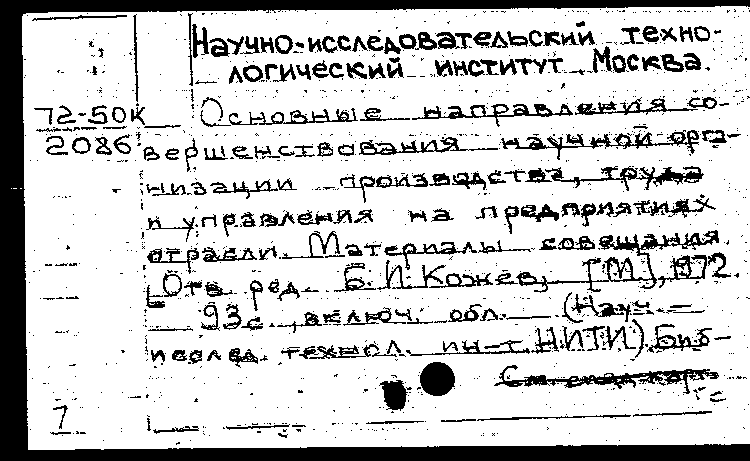 Научно-исследовательский техно-
логический институт. Москва.
72-50К Основные направления со-
2086 вершенствования научной орга-
низации производства, труда
и управления на предприятиях
отрасли. Материалы совещания.
[Отв. ред. Б. И. Кожев, [М], 1972.
93с., включ. обл. (Науч.-
исслед. технол. ин-т. НИТИ). Биб-
См. след. карт.
7